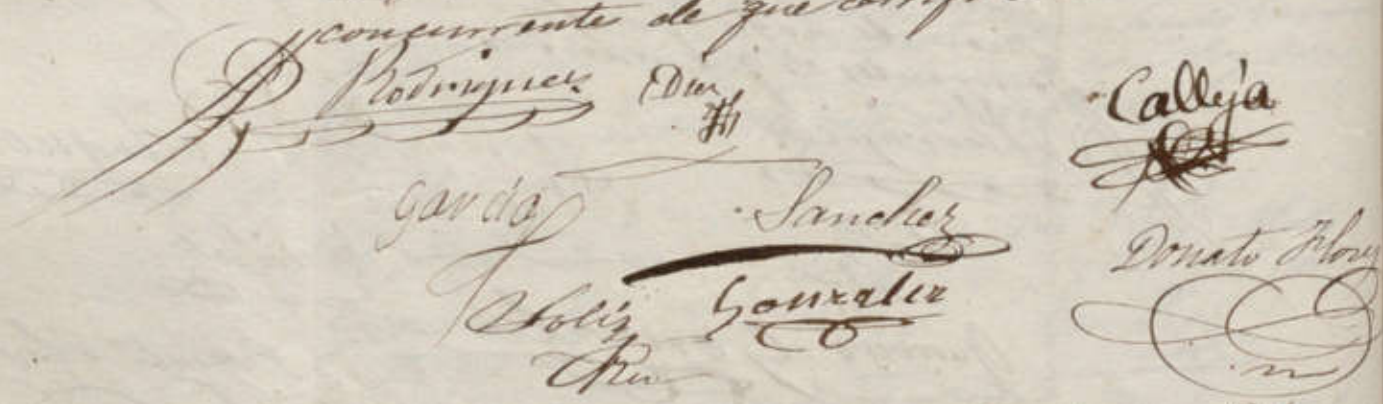 concurrentes de que
Rodriguez Diaz Calleja
Garcia Sanchez
Donato Flores
Solis Gonzalez